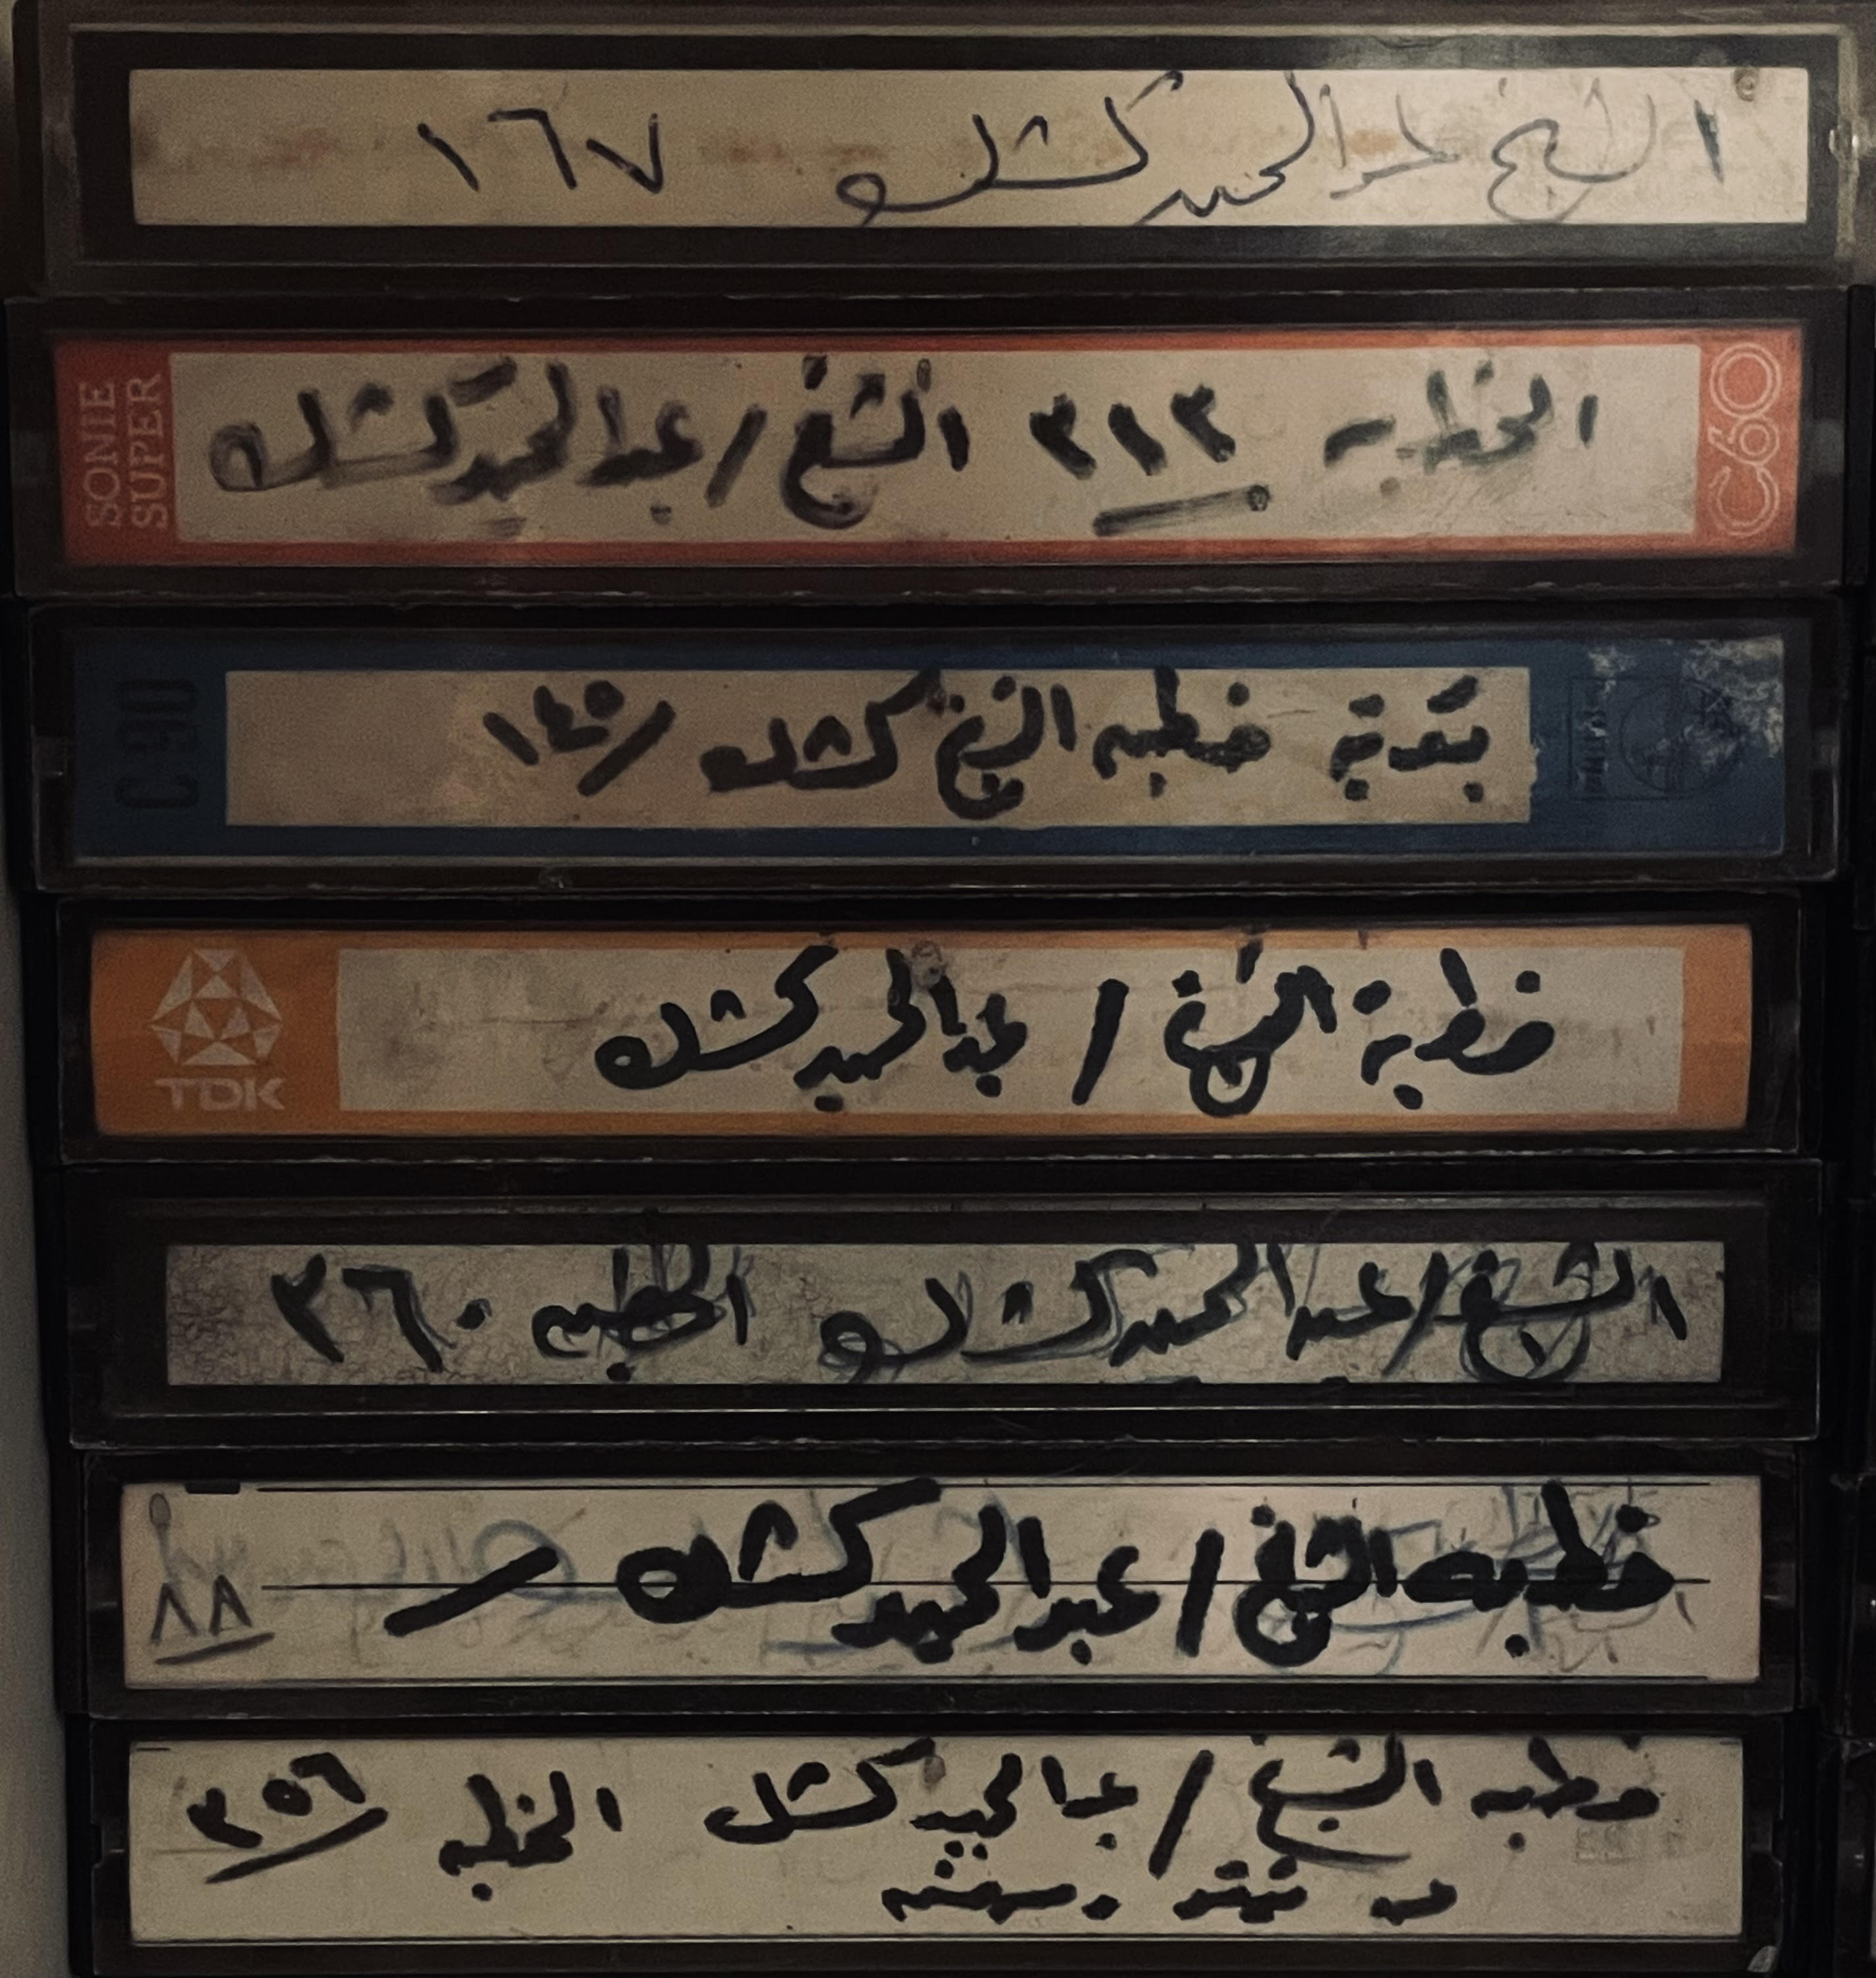 الشيخ عبد الحميد كشك ١٦٧
SONIE SUPER
الخطبه ٣١٣ الشيخ / عبد الحميد كشك
C60
C30
بقية خطبه الشيخ كشك / ١٤٥
TDK
خطبة الشيخ / عبد الحميد كشك
الشيخ / عبد الحميد كشك الخطبه ٣٦٠
خطبه الشيخ / عبد الحميد كشك /
٨٨
خطبه الشيخ / عبد الحميد كشك الخطبه ٣٥٦